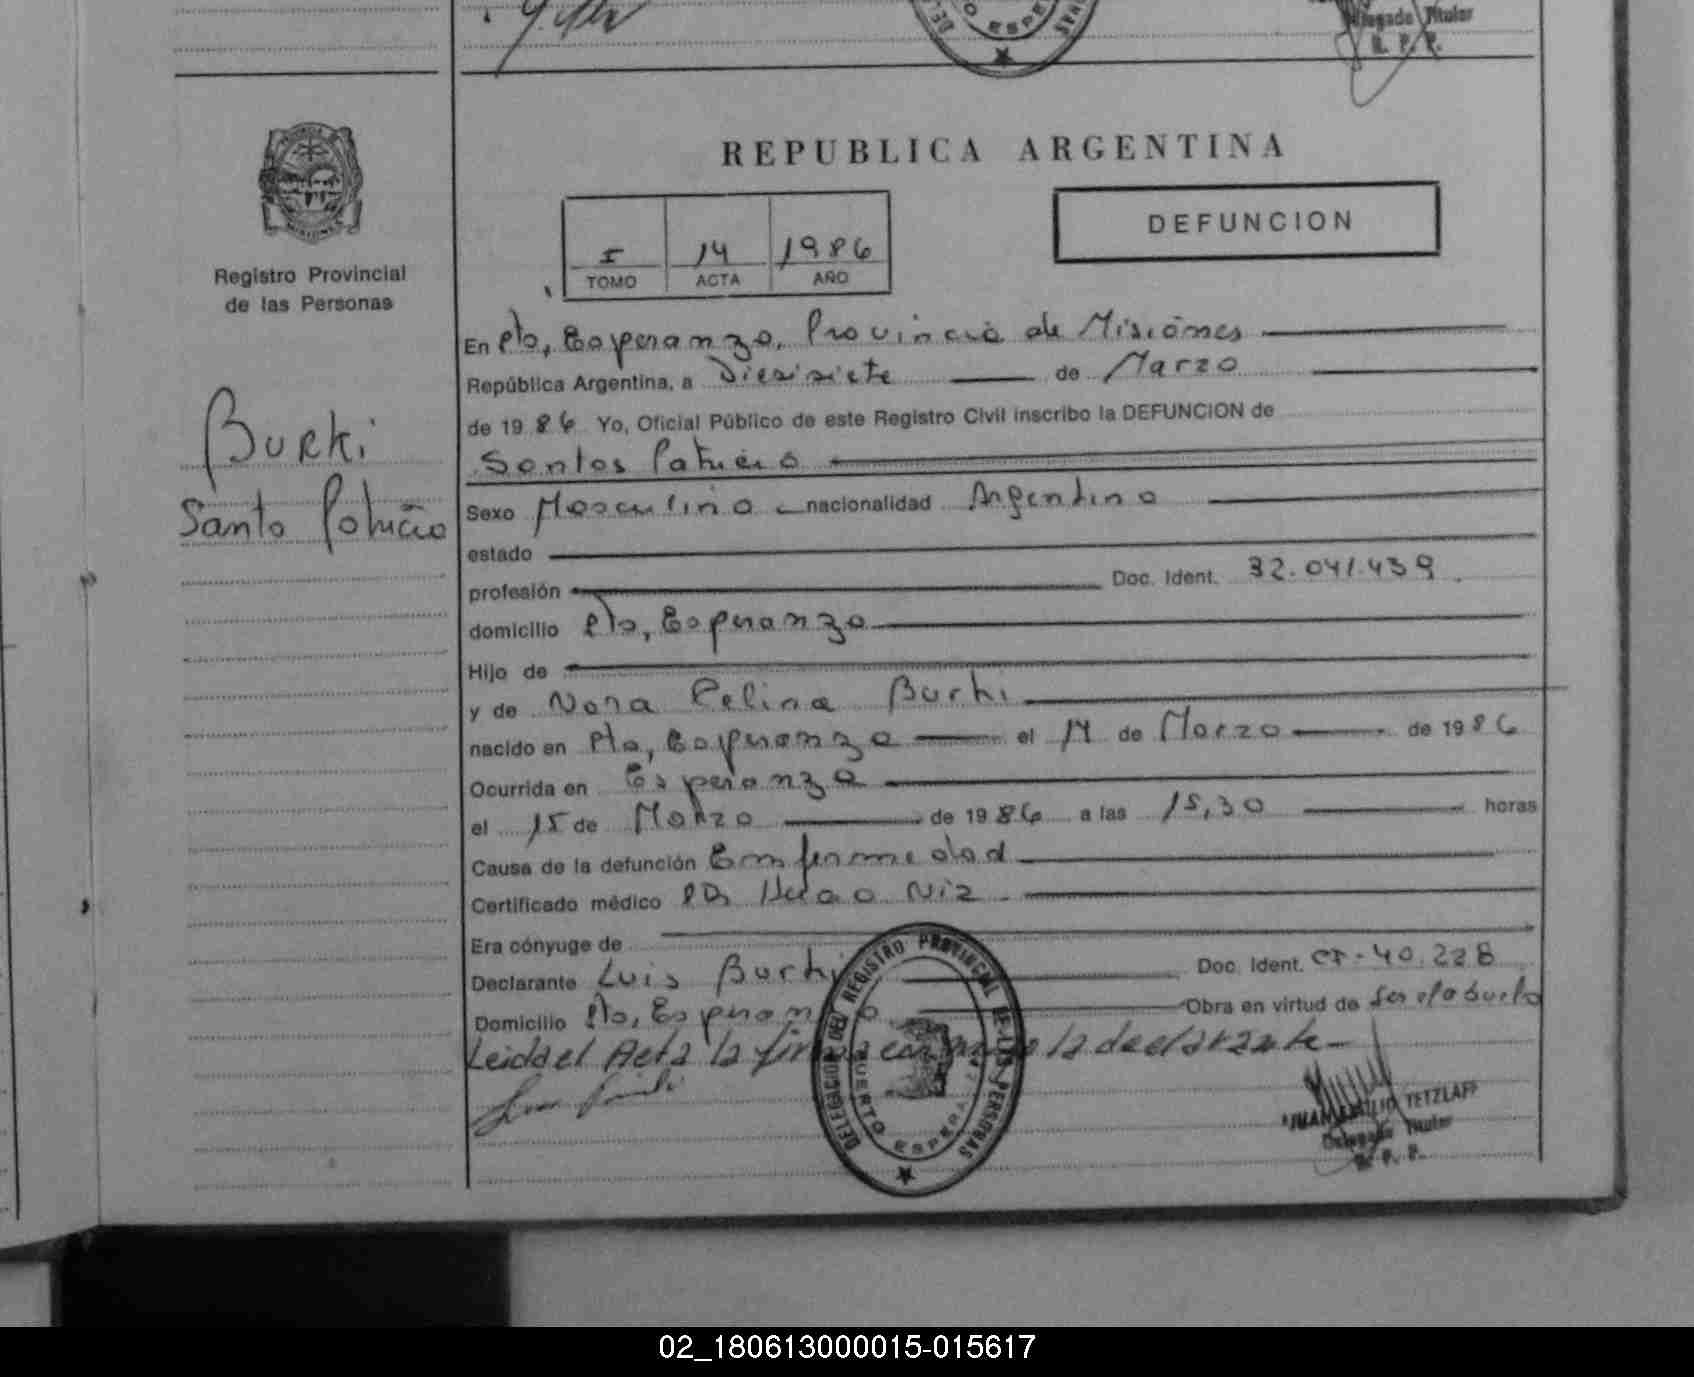 Delegado Titular
R. P. P.
REPUBLICA ARGENTINA
DEFUNCION
I 14 1986
TOMO ACTA AÑO
Registro Provincial
de las Personas
Burki
Santo Patricio
En Pto, Esperanza, Provincia de Misiones
República Argentina, a Diesisiete de Marzo
de 1986 Yo, Oficial Público de este Registro Civil inscribo la DEFUNCION de
Santos Patricio
Sexo Masculino nacionalidad Argentino
estado
profesión Doc. Ident. 32.041.439
domicilio Pto, Esperanza
Hijo de
y de Nora Celina Burki
nacido en Pto, Esperanza el 14 de Marzo de 1986
Ocurrida en Esperanza
el 15 de Marzo de 1986 a las 15,30 horas
Causa de la defunción Enfermedad
Certificado médico Dr Hugo Niz
Era cónyuge de
Declarante Luis Burki Doc. Ident. CI-40.228
Domicilio Pto, Esperanza Obra en virtud de Ser el abuelo
Leida el Acta la firma conmigo la declarante
DELEGACION DEL REGISTRO PROVINCIAL DE LAS PERSONAS
PUERTO ESPERANZA
JUAN EMILIO TETZLAFF
Delegado Titular
R. P. P.
02_180613000015-015617